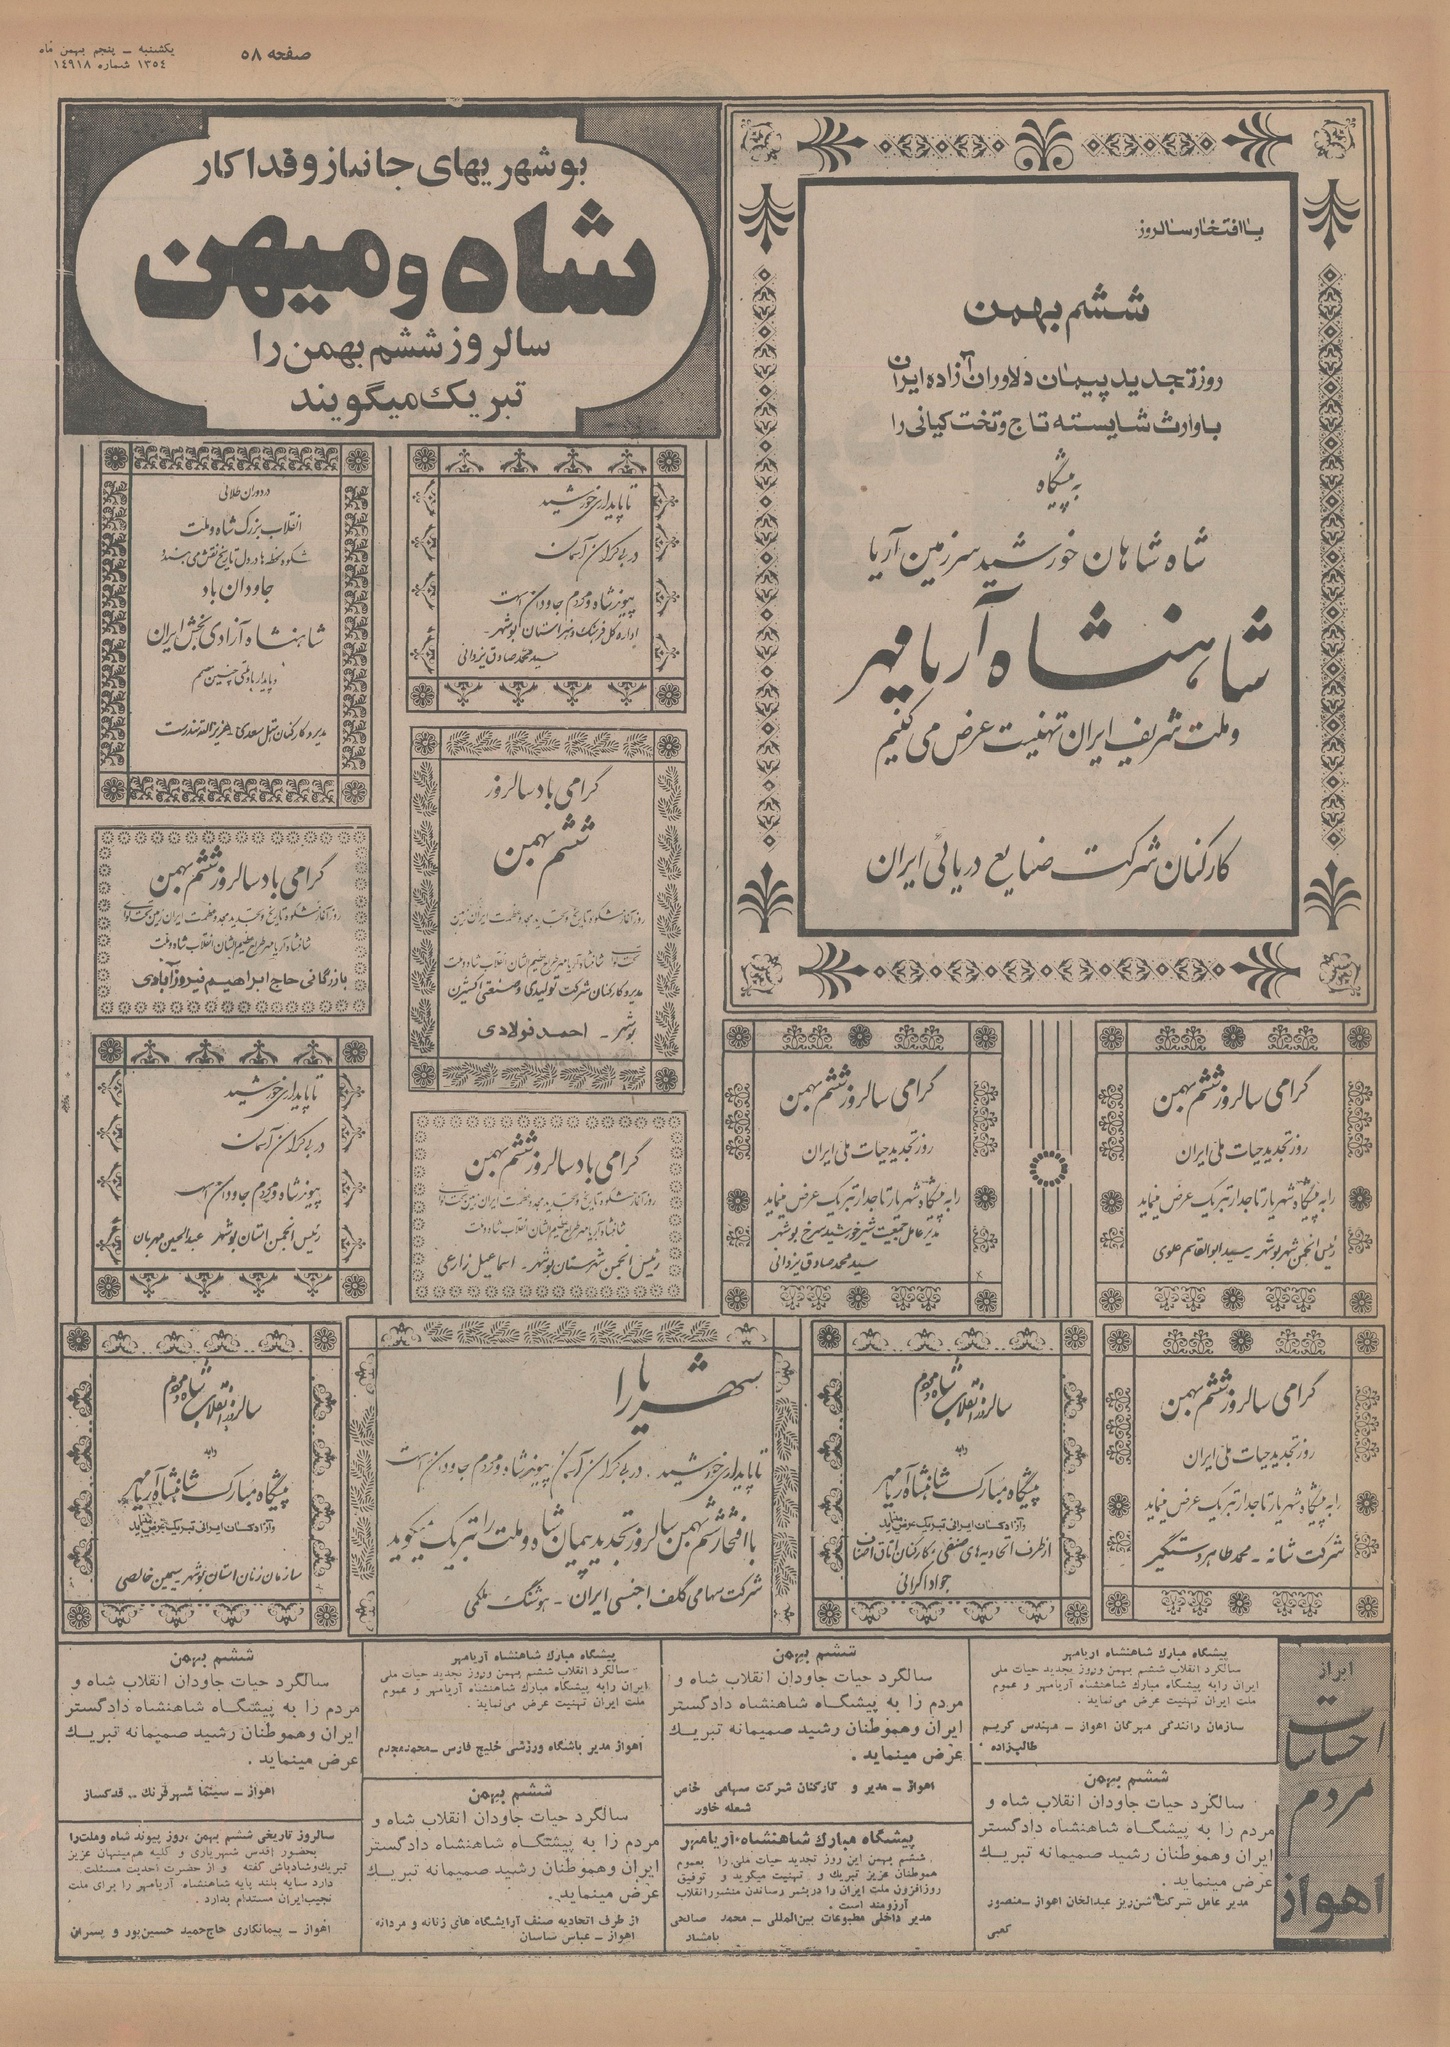 صفحه ۵۸
یکشنبه ــ پنجم بهمن ماه
۱۳۵٤ شماره ۱٤۹۱۸
با افتخار سالروز
ششم بهمن
روز تجدید پیمان دلاوران آزاده ایران
با وارث شایسته تاج و تخت کیانی را
به پیشگاه
شاه شاهان خورشید سرزمین آریا
شاهنشاه آریامهر
و ملت شریف ایران تهنیت عرض می کنیم
کارکنان شرکت صنایع دریائی ایران
بوشهریهای جانباز و فداکار
شاه و میهن
سالروز ششم بهمن را
تبریک میگویند
تا پایداری خورشید
در بی کران آسمان
پیوند شاه و مردم جاودان است
اداره کل فرهنگ و هنر استان بوشهر -
سید محمد صادق یزدانی
در دوران طلائی
انقلاب بزرگ شاه و ملت
شکوه لحظه ها در دل تاریخ نقش می بندد
جاودان باد
شاهنشاه آزادی بخش ایران
مدیر و کارکنان هتل سعدی -
گرامی باد سالروز
ششم بهمن
روز آغاز شکوه تاریخ و تجدید مجد و عظمت ایران زمین تحت لوای
شاهنشاه آریامهر طراح عظیم الشان انقلاب شاه و ملت
مدیر و کارکنان شرکت تولیدی و صنعتی اکسیژن
بوشهر - احمد فولادی
گرامی باد سالروز ششم بهمن
روز آغاز شکوه تاریخ و تجدید مجد و عظمت ایران زمین تحت لوای
شاهنشاه آریامهر طراح عظیم الشان انقلاب شاه و ملت
بازرگانی حاج ابراهیم فیروزآبادی
تا پایداری خورشید
در بی کران آسمان
پیوند شاه و مردم جاودان است
رئیس انجمن استان بوشهر عبدالحسین مهربان
گرامی باد سالروز ششم بهمن
روز آغاز شکوه تاریخ و تجدید مجد و عظمت ایران زمین تحت لوای
شاهنشاه آریامهر طراح عظیم الشان انقلاب شاه و ملت
رئیس انجمن شهرستان بوشهر - اسماعیل زارعی
گرامی سالروز ششم بهمن
روز تجدید حیات ملی ایران
را به پیشگاه شهریار تاجدار تبریک عرض مینماید
رئیس انجمن شهر بوشهر - سید ابوالقاسم علوی
گرامی سالروز ششم بهمن
روز تجدید حیات ملی ایران
را به پیشگاه شهریار تاجدار تبریک عرض مینماید
مدیر عامل جمعیت شیر و خورشید سرخ بوشهر
سید محمد صادق یزدانی
گرامی سالروز ششم بهمن
روز تجدید حیات ملی ایران
را به پیشگاه شهریار تاجدار تبریک عرض مینماید
شرکت شانه - محمد طاهر دستگیر
سالروز انقلاب شاه و مردم
را به
پیشگاه مبارک شاهنشاه آریامهر
و آزادگان ایرانی تبریک عرض مینماید
از طرف اتحادیه های صنفی و کارکنان اتاق اصناف
جواد اکرانی
شهریارا
تا پایداری خورشید . در بی کران آسمان پیوند شاه و مردم جاودان است
با افتخار ششم بهمن سالروز تجدید پیمان شاه و ملت را تبریک میگوید
شرکت سهامی گلف اجنسی ایران - هوشنگ ملکی
سالروز انقلاب شاه و مردم
را به
پیشگاه مبارک شاهنشاه آریامهر
و آزادگان ایرانی تبریک عرض مینماید
سازمان زنان استان بوشهر سیمین خالصی
ابراز
احساسات
مردم
اهواز
پیشگاه مبارك شاهنشاه آریامهر
سالگرد انقلاب ششم بهمن و روز تجدید حیات ملی
ایران را به پیشگاه مبارك شاهنشاه آریامهر و عموم
ملت ایران تهنیت عرض می نماید .
سازمان رانندگی مهرگان اهواز ــ مهندس کریم
طالب زاده
ششم بهمن
سالگرد حیات جاودان انقلاب شاه و
مردم را به پیشگاه شاهنشاه دادگستر
ایران و هموطنان رشید صمیمانه تبریك
عرض مینماید .
مدیر عامل شرکت شن ریز عبدالخان اهواز ــ منصور
کعبی
ششم بهمن
سالگرد حیات جاودان انقلاب شاه و
مردم را به پیشگاه شاهنشاه دادگستر
ایران و هموطنان رشید صمیمانه تبریك
عرض مینماید .
اهواز ــ مدیر و کارکنان شرکت سهامی خاص
شعله خاور
پیشگاه مبارك شاهنشاه آریامهر
ششم بهمن این روز تجدید حیات ملی را بعموم
هموطنان عزیز تبریك و تهنیت میگوید و توفیق
روزافزون ملت ایران را در بثمر رساندن منشور انقلاب
آرزومند است .
مدیر داخلی مطبوعات بین المللی ــ محمد صالحی
بامشاد
پیشگاه مبارك شاهنشاه آریامهر
سالگرد انقلاب ششم بهمن و روز تجدید حیات ملی
ایران را به پیشگاه مبارك شاهنشاه آریامهر و عموم
ملت ایران تهنیت عرض می نماید .
اهواز مدیر باشگاه ورزشی خلیج فارس ــ
ششم بهمن
سالگرد حیات جاودان انقلاب شاه و
مردم را به پیشگاه شاهنشاه دادگستر
ایران و هموطنان رشید صمیمانه تبریك
عرض مینماید .
از طرف اتحادیه صنف آرایشگاه های زنانه و مردانه
اهواز ــ عباس ساسان
ششم بهمن
سالگرد حیات جاودان انقلاب شاه و
مردم را به پیشگاه شاهنشاه دادگستر
ایران و هموطنان رشید صمیمانه تبریك
عرض مینماید .
اهواز ــ سینما شهر فرنگ .. قدکساز
سالروز تاریخی ششم بهمن ، روز پیوند شاه و ملت را
بحضور اقدس شهریاری و کلیه هم میهنان عزیز
تبریك و شادباش گفته و از حضرت احدیت مسئلت
دارد سایه بلند پایه شاهنشاه آریامهر را برای ملت
نجیب ایران مستدام بدارد .
اهواز ــ پیمانکاری حاج حمید حسین پور و پسران